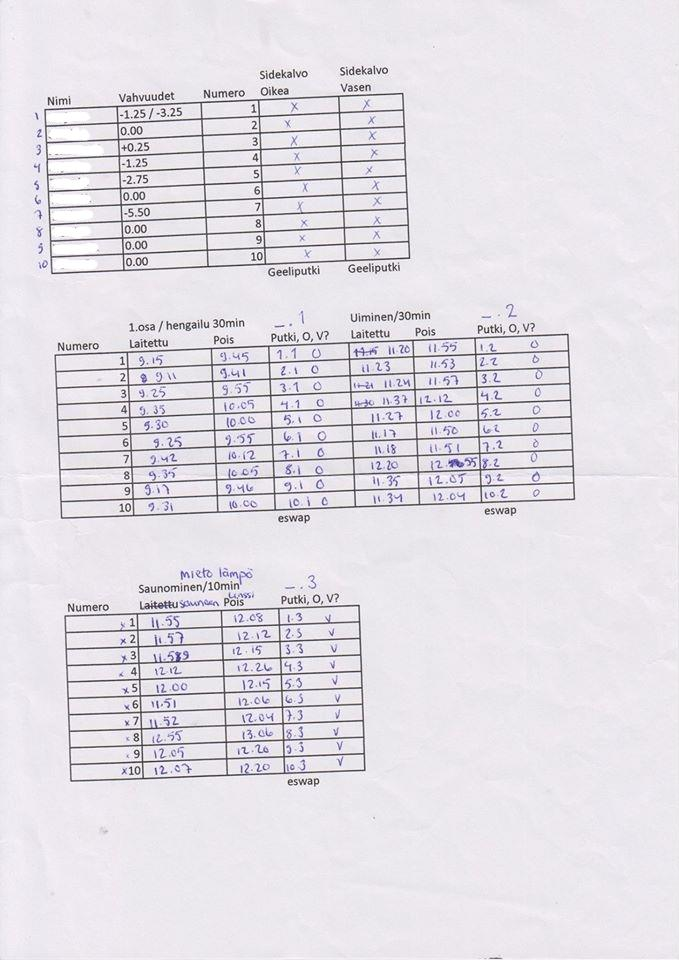 Sidekalvo Sidekalvo
Nimi Vahvuudet Numero Oikea Vasen
1 -1.25 / -3.25 1 x x
2 0.00 2 x x
3 +0.25 3 x x
4 -1.25 4 x x
5 -2.75 5 x x
6 0.00 6 x x
7 -5.50 7 x x
8 0.00 8 x x
9 0.00 9 x x
10 0.00 10 x x
Geeliputki Geeliputki
1.osa / hengailu 30min _.1 Uiminen/30min _.2
Numero Laitettu Pois Putki, O, V? Laitettu Pois Putki, O, V?
1 9.15 9.45 1.1 O 11.20 11.55 1.2 O
2 9.11 9.41 2.1 O 11.23 11.53 2.2 O
3 9.25 9.55 3.1 O 11.24 11.57 3.2 O
4 9.35 10.05 4.1 O 11.37 12.12 4.2 O
5 9.30 10.00 5.1 O 11.27 12.00 5.2 O
6 9.25 9.55 6.1 O 11.17 11.50 6.2 O
7 9.42 10.12 7.1 O 11.18 11.51 7.2 O
8 9.35 10.05 8.1 O 12.20 12.55 8.2 O
9 9.17 9.46 9.1 O 11.35 12.05 9.2 O
10 9.31 10.00 10.1 O 11.34 12.04 10.2 O
eswap eswap
mieto lämpö
Saunominen/10min _.3
Numero Laitettu saunaan Linssi Pois Putki, O, V?
x 1 11.55 12.08 1.3 V
x 2 11.57 12.12 2.3 V
x 3 12.15 3.3 V
x 4 12.12 12.26 4.3 V
x 5 12.00 12.15 5.3 V
x 6 11.51 12.06 6.3 V
x 7 11.52 12.04 7.3 V
x 8 12.55 13.06 8.3 V
x 9 12.05 12.20 9.3 V
x 10 12.07 12.20 10.3 V
eswap